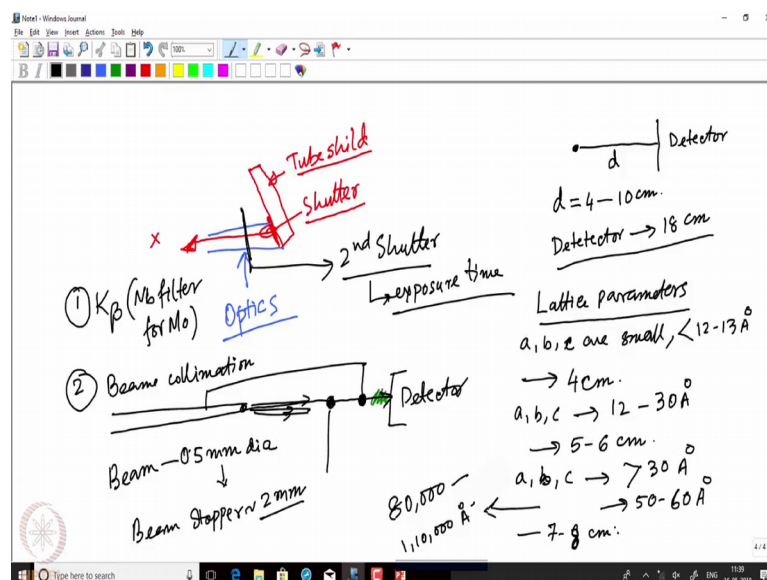 Note1 - Windows Journal
File Edit View Insert Actions Tools Help
100%
B I
Tubeshild
Shutter
X
2nd Shutter
↳ exposure time
① Kβ (Nb filter
for Mo)
Optics
② Beame collimation
Detector
Beam - 05 mm dia
↓
Beam Stopper ~ 2mm
Detector
d
d = 4 - 10 cm.
Detetector → 18 cm
Lattice Parameters
a, b, c are small, < 12-13 Å
→ 4 cm.
a, b, c → 12 - 30 Å
→ 5-6 cm.
a, b, c → > 30 Å
→ 50-60 Å
- 7-8 cm.
80,000 -
1,10,000 Å
4/4
Type here to search
ENG
11:39